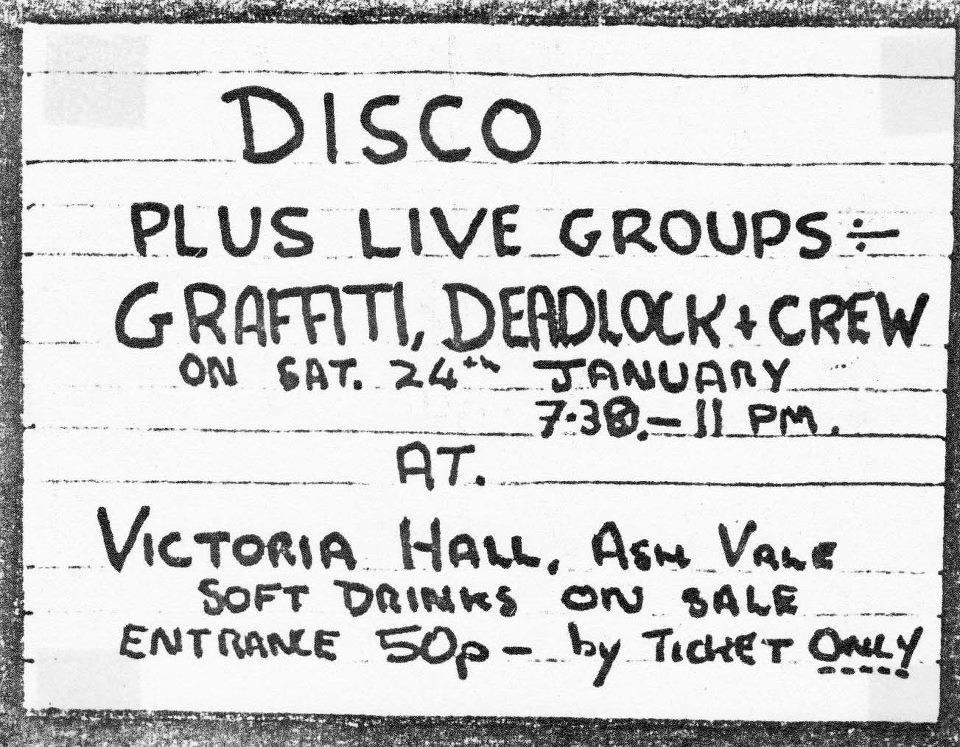 DISCO
PLUS LIVE GROUPS ÷
GRAFFITI, DEADLOCK + CREW
ON SAT. 24th JANUARY
7·30.— 11 PM.
AT.
VICTORIA HALL, ASH VALE
SOFT DRINKS ON SALE
ENTRANCE 50p — by TICKET ONLY